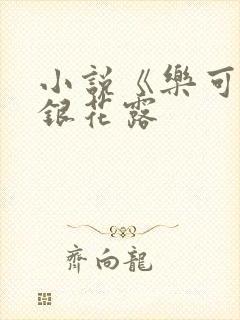 小説《樂可
銀花露
齊向龍